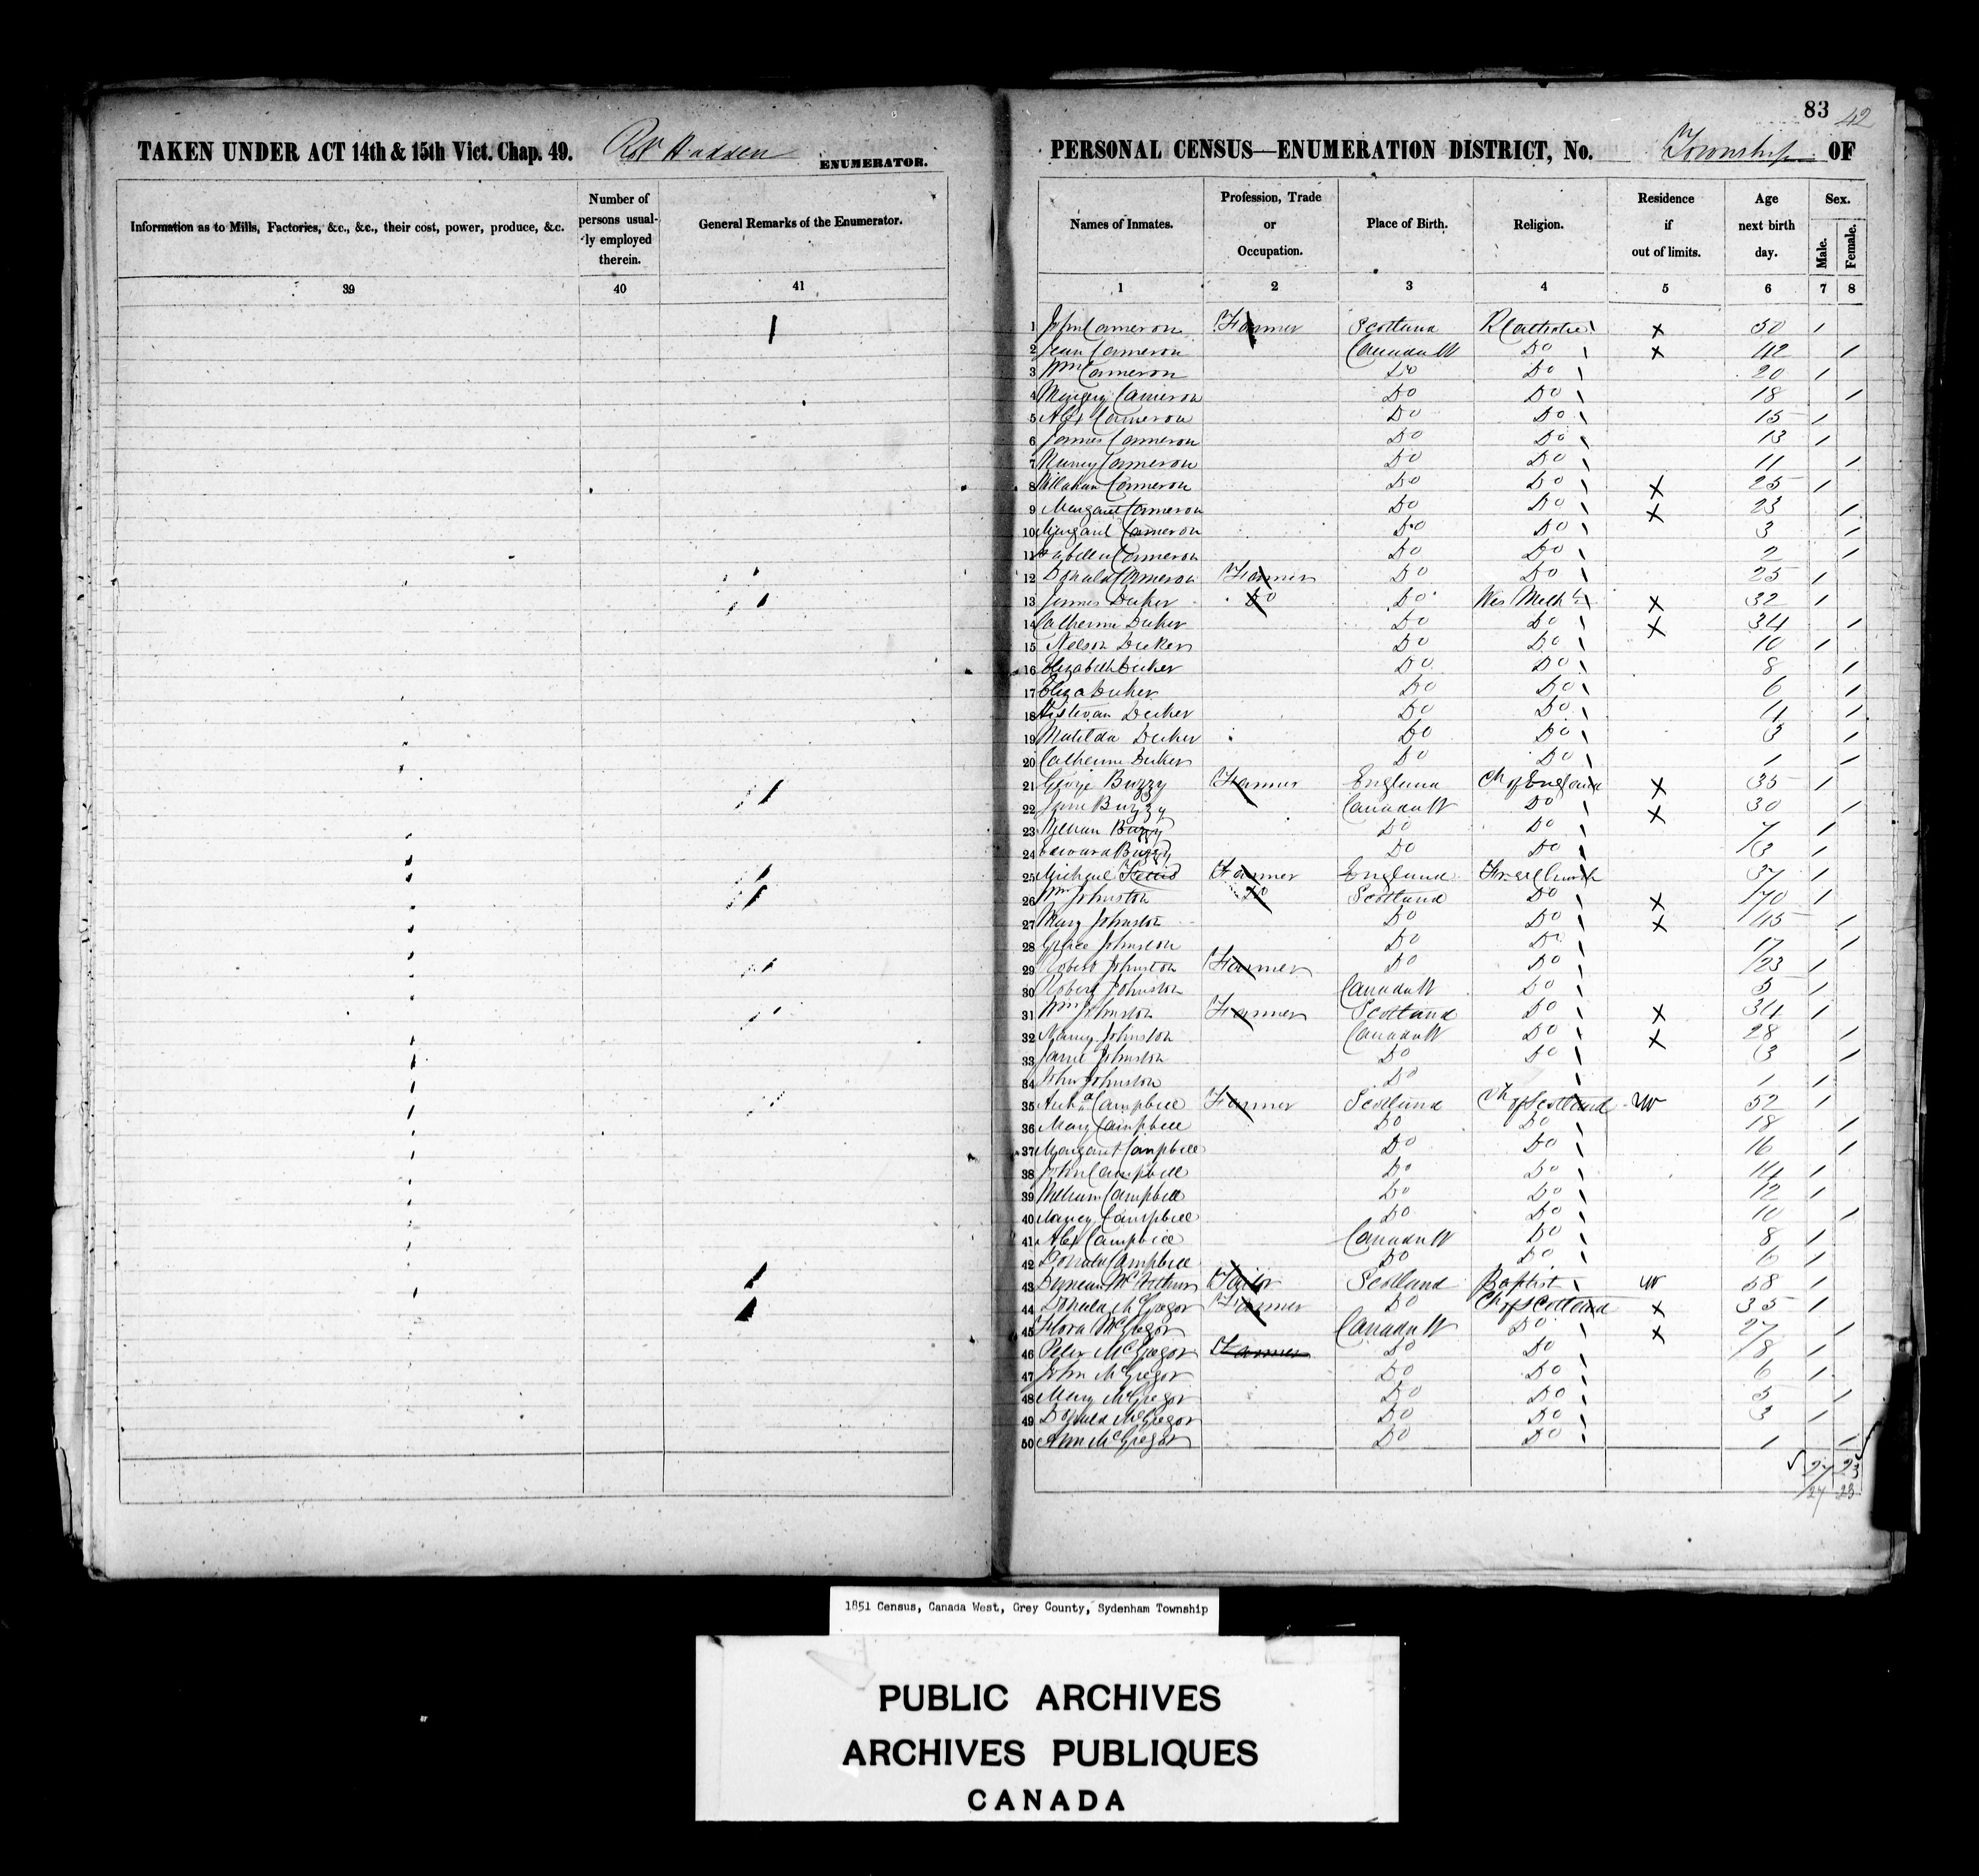 TAKEN UNDER ACT 14th & 15th Vict. Chap. 49. ENUMERATOR.
Information as to Mills, Factories, &c., &c., their cost, power, produce, &c.
Number of persons usually employed therein.
General Remarks of the Enumerator.
39 40 41
83 42
PERSONAL CENSUS—ENUMERATION DISTRICT, No. Township OF
Names of Inmates. Profession, Trade or Occupation. Place of Birth. Religion. Residence if out of limits. Age next birth day. Sex. Male. Female.
1 2 3 4 5 6 7 8
1 John Cameron Farmer Scotland R Catholic x 50 1
2 Jean Cameron Canada W Do x 42 1
3 Wm Cameron Do Do 20 1
4 Cameron Do Do 18 1
5 Alex Cameron Do Do 15 1
6 James Cameron Do Do 13 1
7 Nancy Cameron Do Do 11 1
8 Cameron Do Do x 25 1
9 Margaret Cameron Do Do x 23 1
10 Margaret Cameron Do Do 3 1
11 Isabella Cameron Do Do 2 1
12 Donald Cameron Farmer Do Do 25 1
13 James Ducker Do Do Wes Meth x 32 1
14 Catherine Ducker Do Do x 34 1
15 Nelson Ducker Do Do 10 1
16 Elizabeth Ducker Do Do 8 1
17 Eliza Ducker Do Do 6 1
18 Ducker Do Do 4 1
19 Matilda Ducker Do Do 3 1
20 Catherine Ducker Do Do 1 1
21 George Buzzy Farmer England Ch of England x 35 1
22 Jane Buzzy Canada W Do x 30 1
23 William Buzzy Do Do 7 1
24 Edward Buzzy Do Do 3 1
25 Michael Farmer England Free Church 37 1
26 Wm Johnston Do Scotland Do x 70 1
27 Mary Johnston Do Do x 45 1
28 Grace Johnston Do Do 17 1
29 Robert Johnston Farmer Do Do 23 1
30 Robert Johnston Canada W Do 5 1
31 Wm Johnston Farmer Scotland Do x 34 1
32 Nancy Johnston Canada W Do x 28 1
33 Jane Johnston Do Do 3 1
34 John Johnston Do 1 1
35 Campbell Farmer Scotland Ch of Scotland w 52 1
36 Mary Campbell Do Do 18 1
37 Margaret Campbell Do Do 16 1
38 John Campbell Do Do 14 1
39 William Campbell Do Do 12 1
40 Nancy Campbell Do Do 10 1
41 Alex Campbell Canada W Do 8 1
42 Donald Campbell Do Do 6 1
43 Duncan Tailor Scotland Baptist w 58 1
44 Donald McGregor Farmer Do Ch of Scotland x 35 1
45 Flora McGregor Canada W Do x 27 1
46 Peter McGregor Farmer Do Do 8 1
47 John McGregor Do Do 6 1
48 Mary McGregor Do Do 5 1
49 Donald McGregor Do Do 3 1
50 Ann McGregor Do Do 1 1
27 23
27 23
1851 Census, Canada West, Grey County, Sydenham Township
PUBLIC ARCHIVES
ARCHIVES PUBLIQUES
CANADA